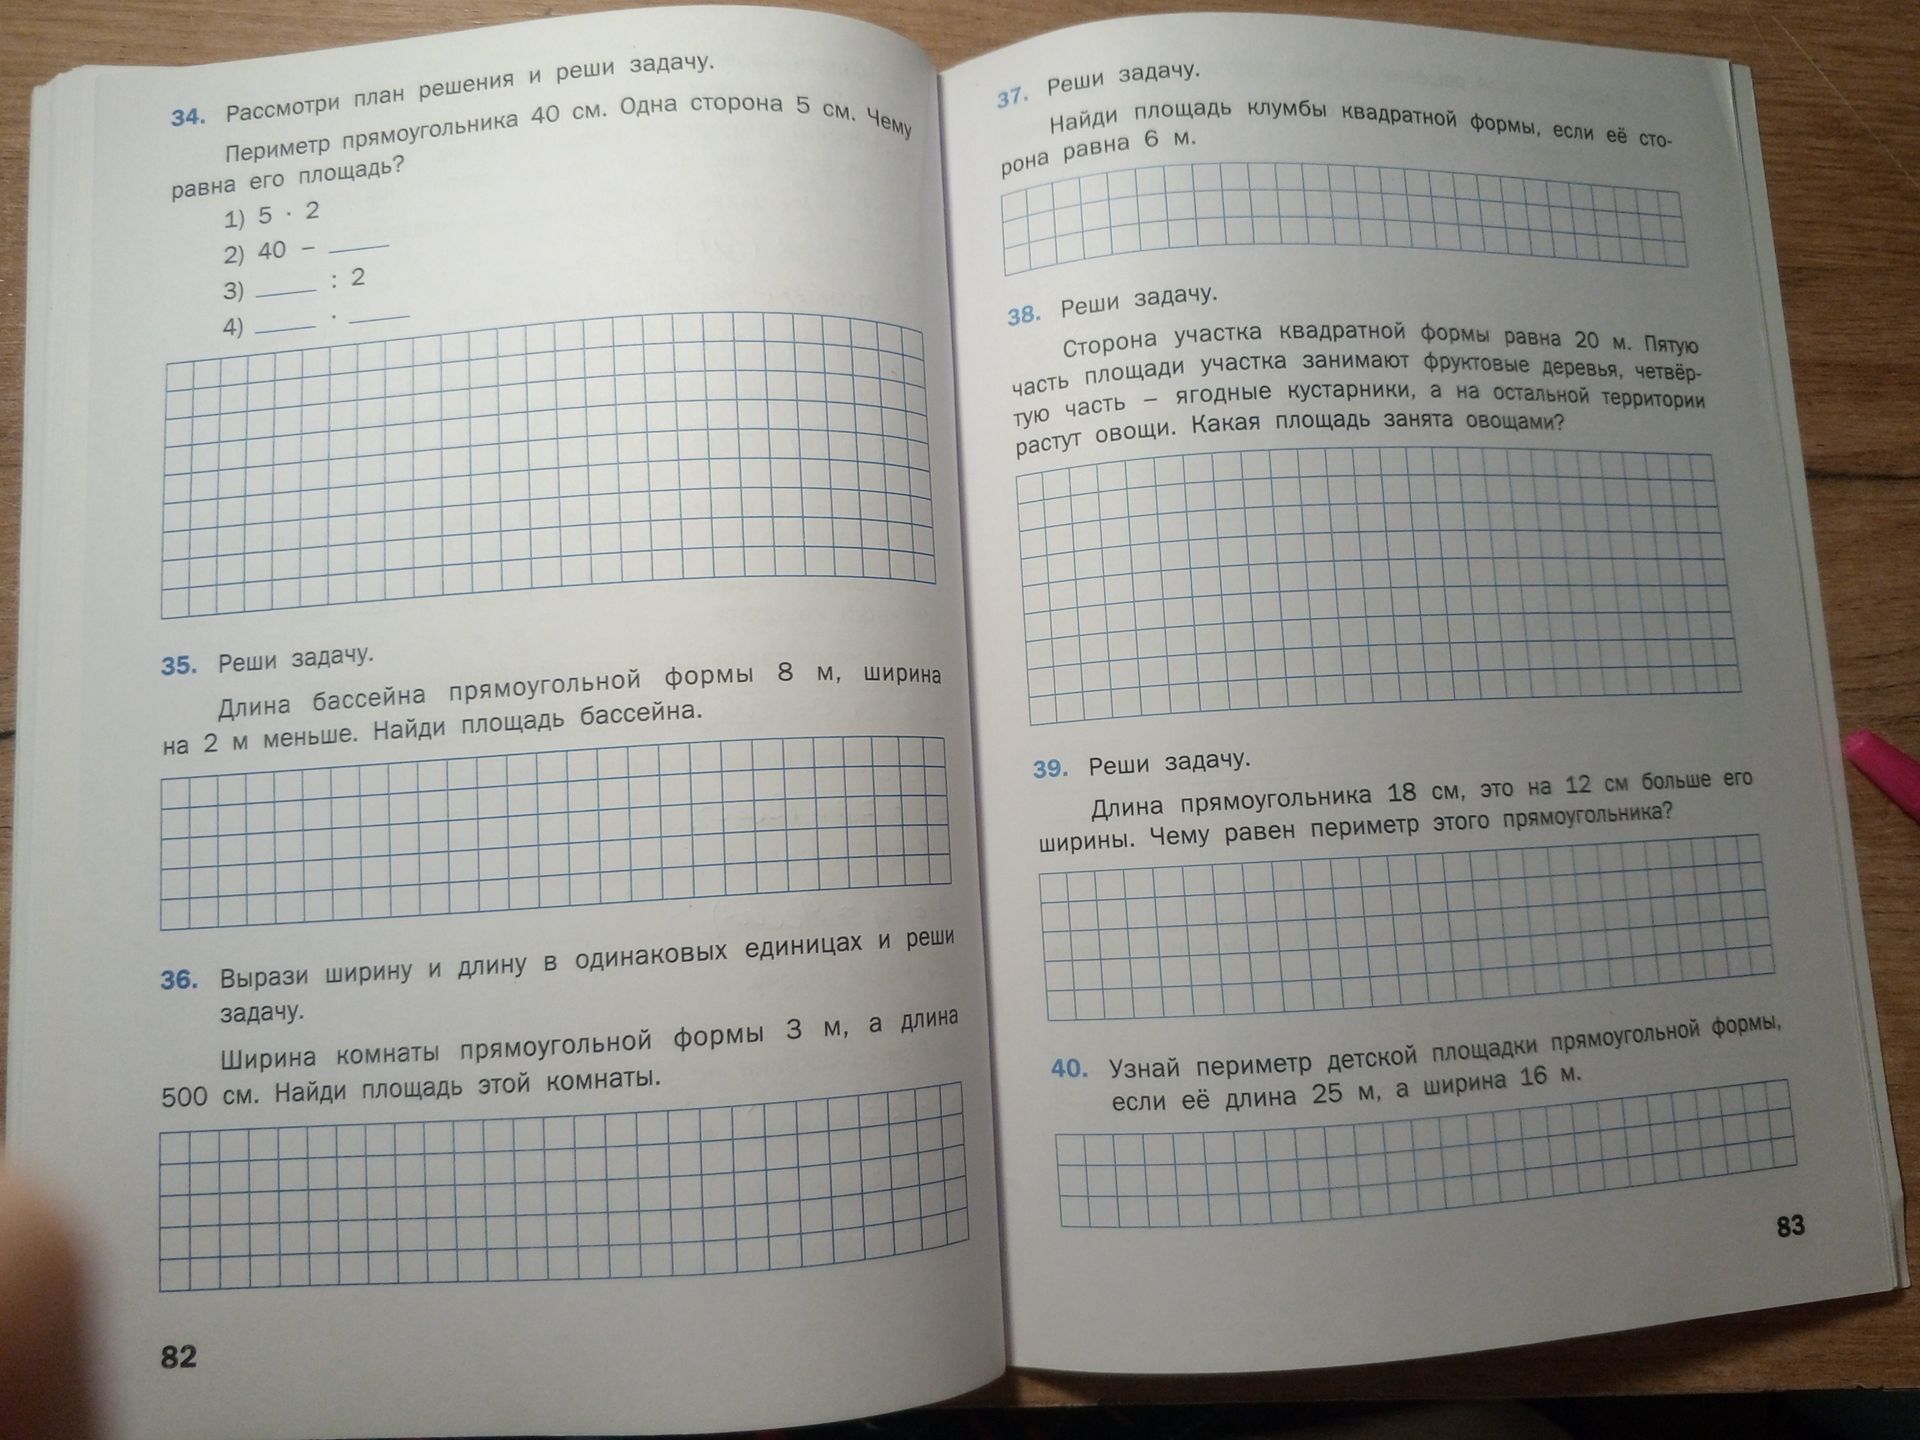 34. Рассмотри план решения и реши задачу.
Периметр прямоугольника 40 см. Одна сторона 5 см. Чему
равна его площадь?
1) 5 · 2
2) 40 – ____
3) ____ : 2
4) ____ · ____
35. Реши задачу.
Длина бассейна прямоугольной формы 8 м, ширина
на 2 м меньше. Найди площадь бассейна.
36. Вырази ширину и длину в одинаковых единицах и реши
задачу.
Ширина комнаты прямоугольной формы 3 м, а длина
500 см. Найди площадь этой комнаты.
82
37. Реши задачу.
Найди площадь клумбы квадратной формы, если её сто-
рона равна 6 м.
38. Реши задачу.
Сторона участка квадратной формы равна 20 м. Пятую
часть площади участка занимают фруктовые деревья, четвёр-
тую часть – ягодные кустарники, а на остальной территории
растут овощи. Какая площадь занята овощами?
39. Реши задачу.
Длина прямоугольника 18 см, это на 12 см больше его
ширины. Чему равен периметр этого прямоугольника?
40. Узнай периметр детской площадки прямоугольной формы,
если её длина 25 м, а ширина 16 м.
83